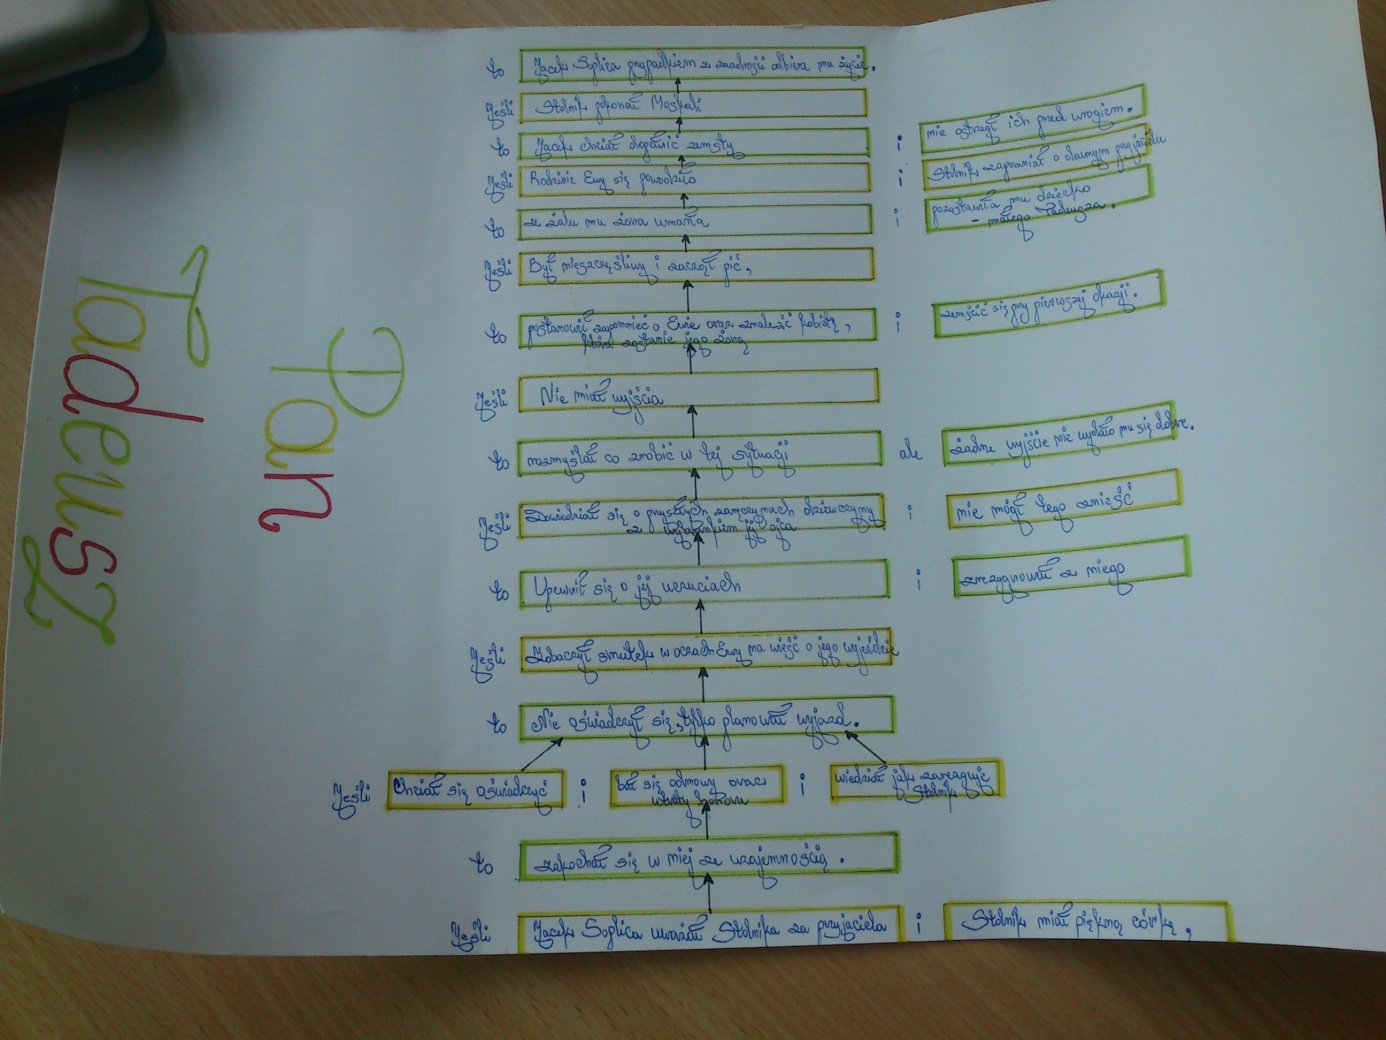 Pan
Tadeusz
to Jacek Soplica przypadkiem z zazdrości odbiera mu życie.
Jeśli Stolnik pokonał Moskali
to Jacek chciał dopełnić zemsty i nie ostrzegł ich przed wrogiem.
Jeśli Rodzinie Ewy się powodziło i Stolnik zapomniał o dawnym przyjacielu
to z żalu mu żona umarła i pozostawiła mu dziecko
- małego Tadeusza.
Jeśli Był nieszczęśliwy i zaczął pić,
to postanowił zapomnieć o Ewie oraz znaleźć kobietę,
która zostanie jego żoną i zemścić się przy pierwszej okazji.
Jeśli Nie miał wyjścia
to rozmyślał co zrobić w tej sytuacji ale żadne wyjście nie wydało mu się dobre.
Jeśli Dowiedział się o przyszłych zaręczynach dziewczyny
z wybrankiem jej ojca i nie mógł tego znieść
to Upewnił się o jej uczuciach i zrezygnował z niego
Jeśli Zobaczył smutek w oczach Ewy na wieść o jego wyjeździe
to Nie oświadczył się, tylko planował wyjazd.
Jeśli Chciał się oświadczyć i bał się odmowy oraz
utraty honoru i wiedział jak zareaguje
Stolnik
to zakochał się w niej ze wzajemnością.
Jeśli Jacek Soplica uważał Stolnika za przyjaciela i Stolnik miał piękną córkę,